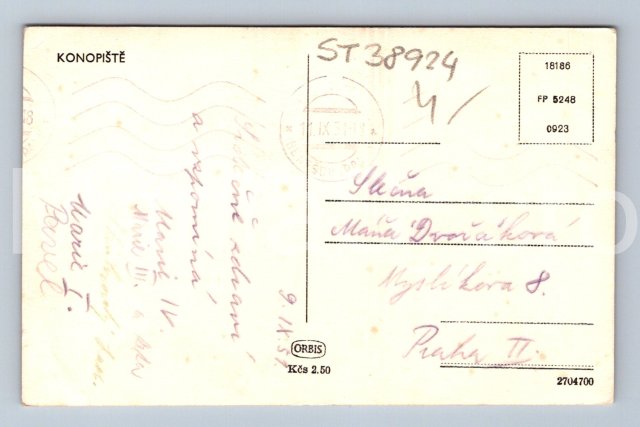 KONOPIŠTĚ
ST38924
4/
18186
FP 5248
0923
Srdečné zdraví
a vzpomíná
Marie IV.
Marie III. a
Marie I.
Pavel
9.IX.51
Slečna
Máňa Dvořáková
Myslíkova 8.
Praha II.
ORBIS
Kčs 2.50
2704700